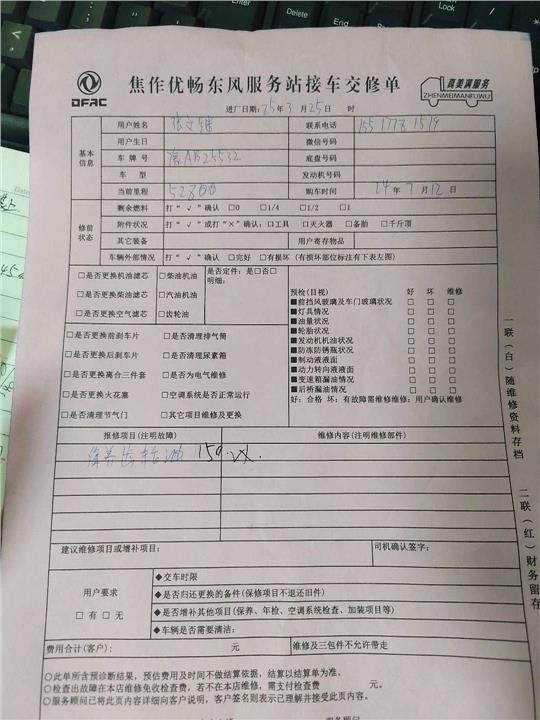 DFAC
焦作优畅东风服务站接车交修单
真美满服务
ZHENMEIMANFUWU
进厂日期:25年3月25日 时
基本信息
用户姓名 联系电话
用户生日 微信号码
车牌号 豫AB25532 底盘号码
车 型 发动机号码
当前里程 52800 购车时间 24年7月12日
修前状态
剩余燃料 打“√”确认 □0 □1/4 □1/2 □1
附件状况 打“√”或打“×”确认:□工具 □灭火器 □备胎 □千斤顶
其它装备 用户寄存物品
车辆外部情况 打“√”确认 □完好 □有损坏(有损坏部位标注有下表左图)
□是否更换机油滤芯 □柴油机油
□是否更换柴油滤芯 □汽油机油
□是否更换空气滤芯 □齿轮油
是否定件:是□否□
明细:
□是否更换前刹车片 □是否清理排气筒
□是否更换后刹车片 □是否清理尿素箱
□是否更换离合三件套 □是否为电气维修
□是否更换火花塞 □空调系统是否正常运行
□是否清理节气门 □其它项目维修及更换
预检(目视) 好 坏 维修
■前挡风玻璃及车门玻璃状况 □ □ □
■灯具情况 □ □ □
■油量状况 □ □ □
■轮胎状况 □ □ □
■发动机机油状况 □ □ □
■防冻防锈瓶状况 □ □ □
■制动液液面 □ □ □
■动力转向液液面 □ □ □
■变速箱漏油情况 □ □ □
■后桥漏油情况 □ □ □
好:合格 坏:有故障需维修维修:用户确认维修
报修项目(注明故障) 维修内容(注明维修部件)
建议维修项目或增补项目: 司机确认签字:
用户要求
□有 □无
◆交车时限
◆是否归还更换的备件(保修项目不退还旧件)
◆是否增补其他项目(保养、年检、空调系统检查、加装项目等)
◆车辆是否需要清洁:
费用合计(客户): 元 维修及三包件不允许带走
○此单所含预诊断结果,预估费用及时间不做结算依据,结算以结算单为准。
○检查出故障在本店维修免收检查费,若不在本店维修,需支付检查费 元。
○服务顾问已将此页内容详细向客户说明,客户签名则表示已理解并接受此页内容。
一联(白)随维修资料存档
二联(红)财务留存